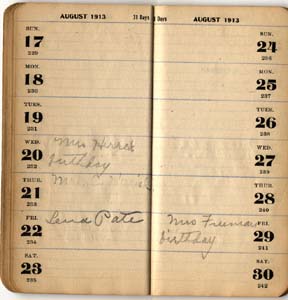 AUGUST 1913
31 Days
SUN.
17
229
MON.
18
230
TUES.
19
231
WED.
20
232
Mrs Herrick
birthday
THUR.
21
233
FRI.
22
234
Lena Pate
SAT.
23
235
Days
AUGUST 1913
SUN.
24
236
MON.
25
237
TUES.
26
238
WED.
27
239
THUR.
28
240
FRI.
29
241
Mrs Freeman
birthday
SAT.
30
242